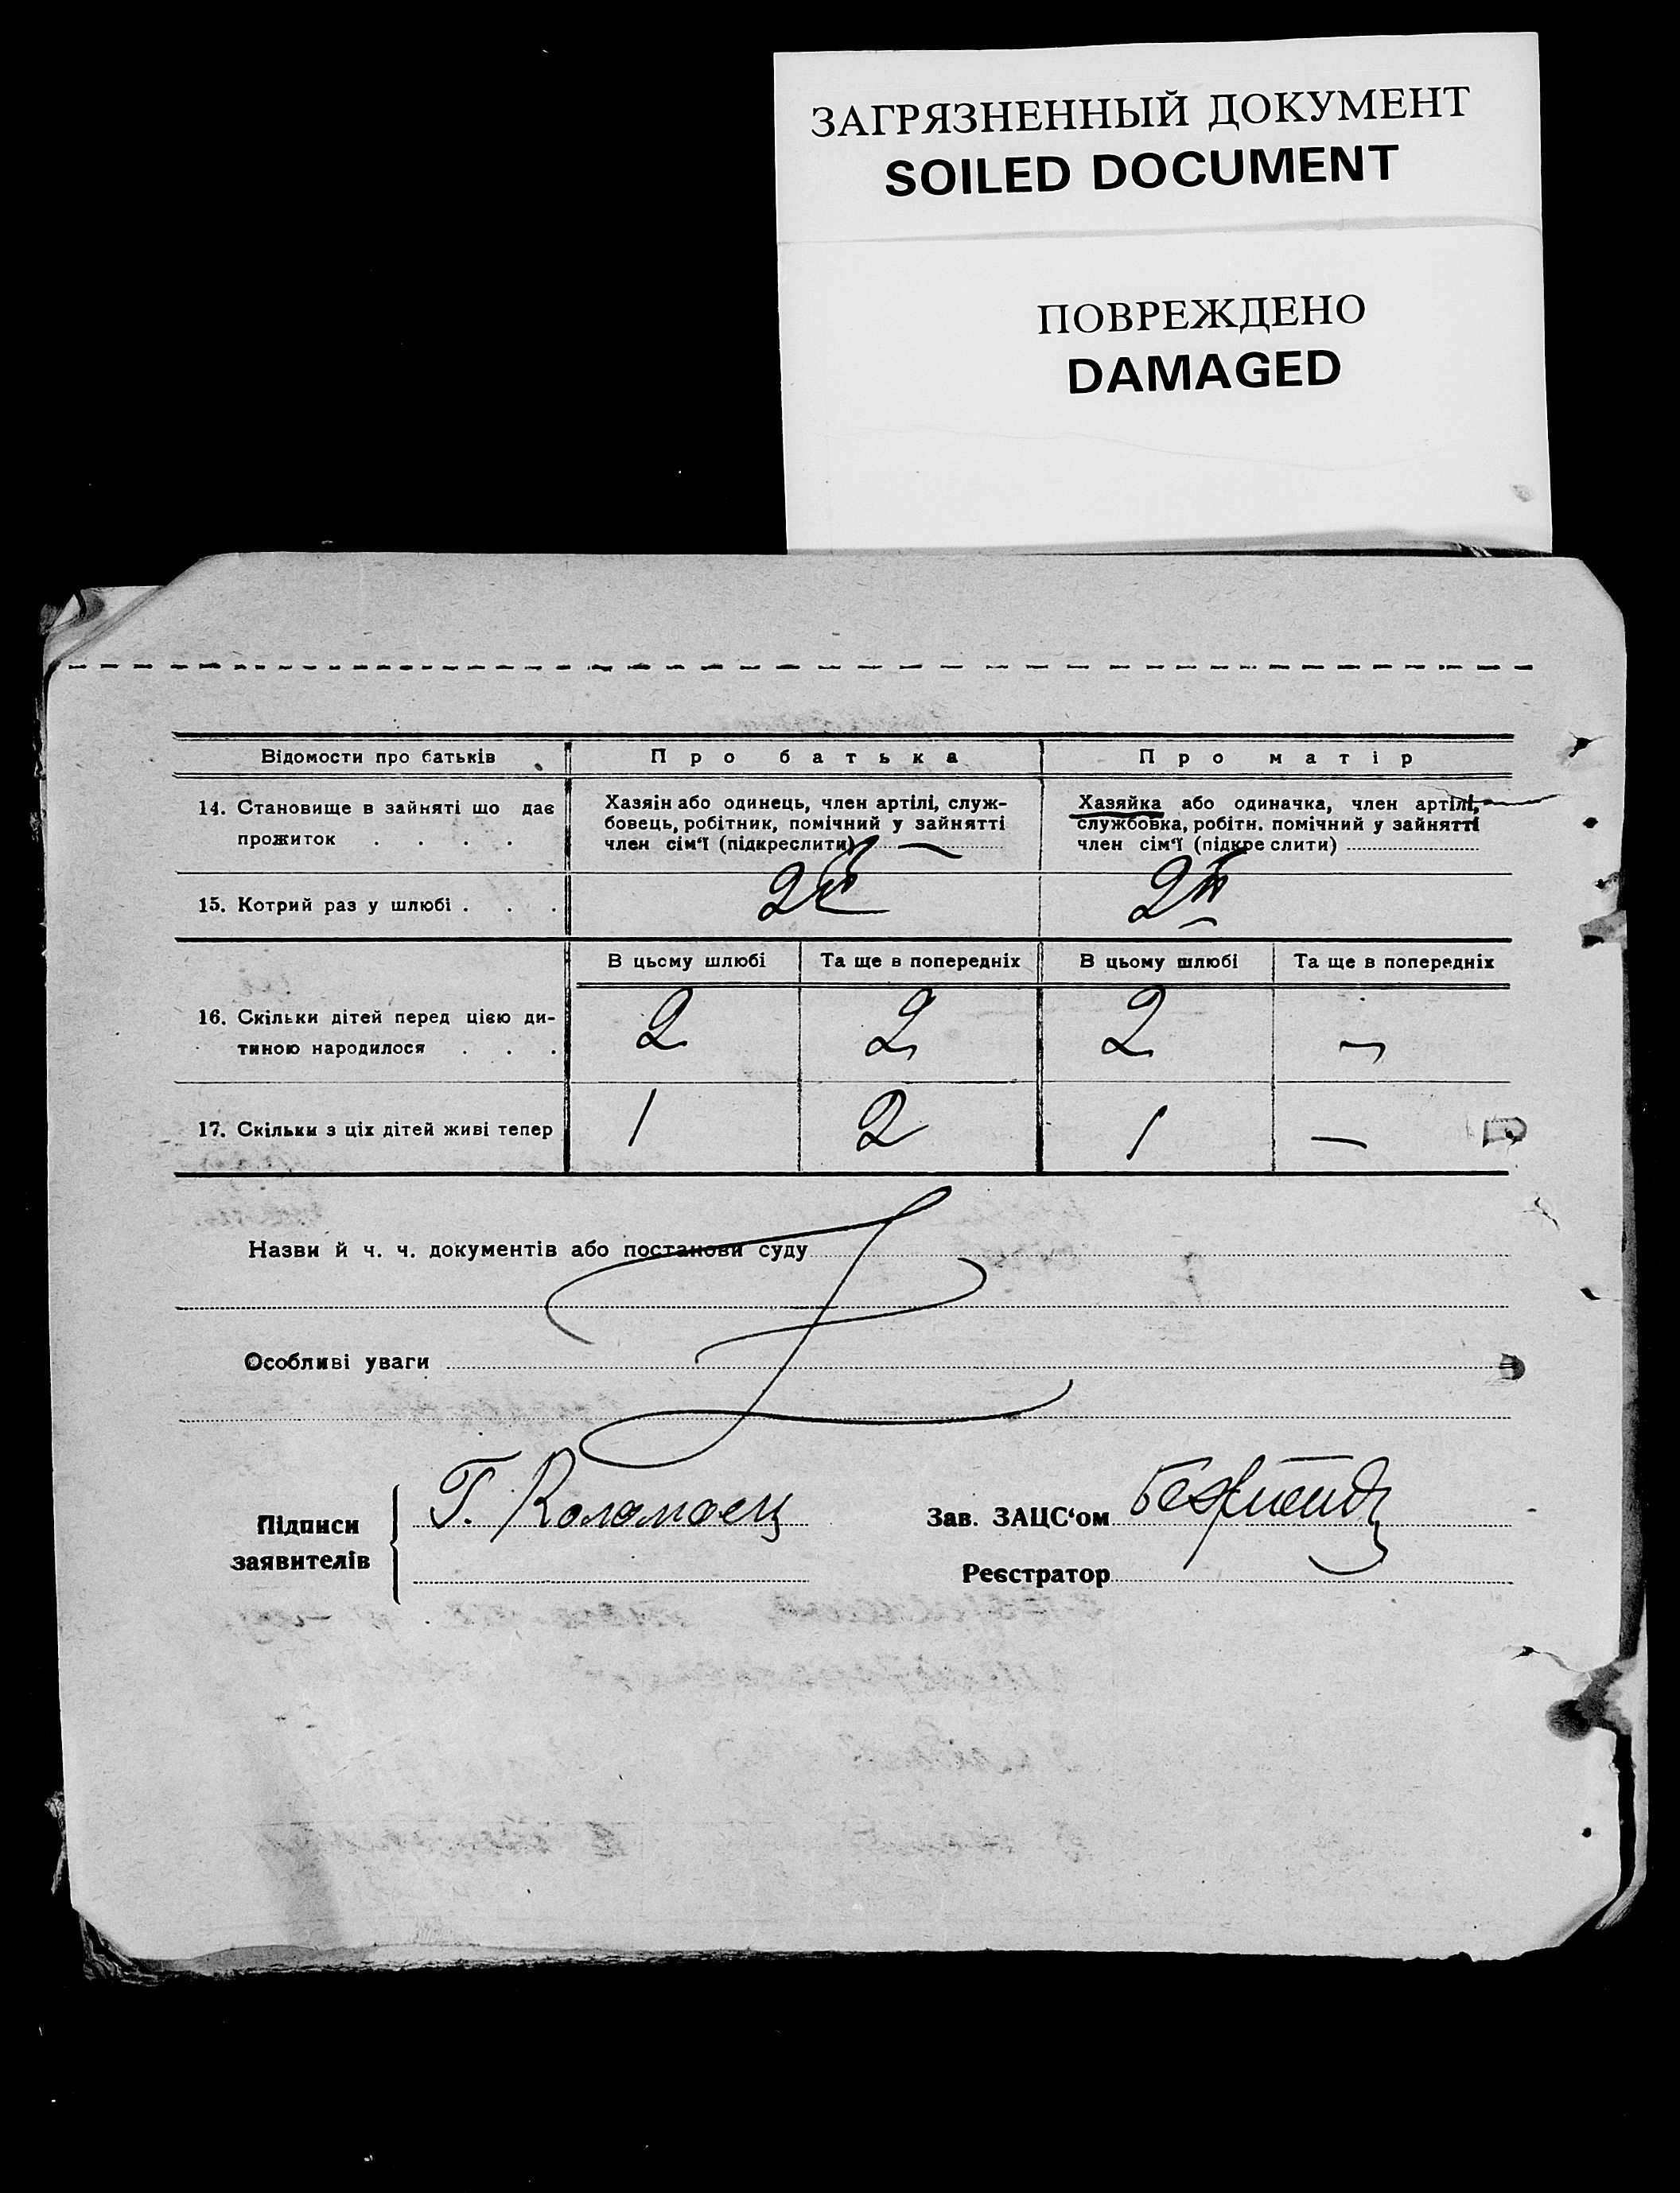 ЗАГРЯЗНЕННЫЙ ДОКУМЕНТ
SOILED DOCUMENT
ПОВРЕЖДЕНО
DAMAGED
Відомости про батьків Про батька Про матір
14. Становище в зайняті що дає прожиток . . . .
Хазяїн або одинець, член артілі, служ-
бовець, робітник, помічний у зайнятті
член сім‘ї (підкреслити)
Хазяйка або одиначка, член артілі,
службовка, робітн. помічний у зайнятті
член сім‘ї (підкреслити)
15. Котрий раз у шлюбі . . . 2й 2й
В цьому шлюбі Та ще в попередніх В цьому шлюбі Та ще в попередніх
16. Скільки дітей перед цією ди-
тиною народилося . . . 2 2 2 —
17. Скільки з ціх дітей живі тепер 1 2 1 —
Назви й ч. ч. документів або постанови суду
Особливі уваги
Підписи заявителів Г. Коломоец
Зав. ЗАЦС‘ом
Реєстратор